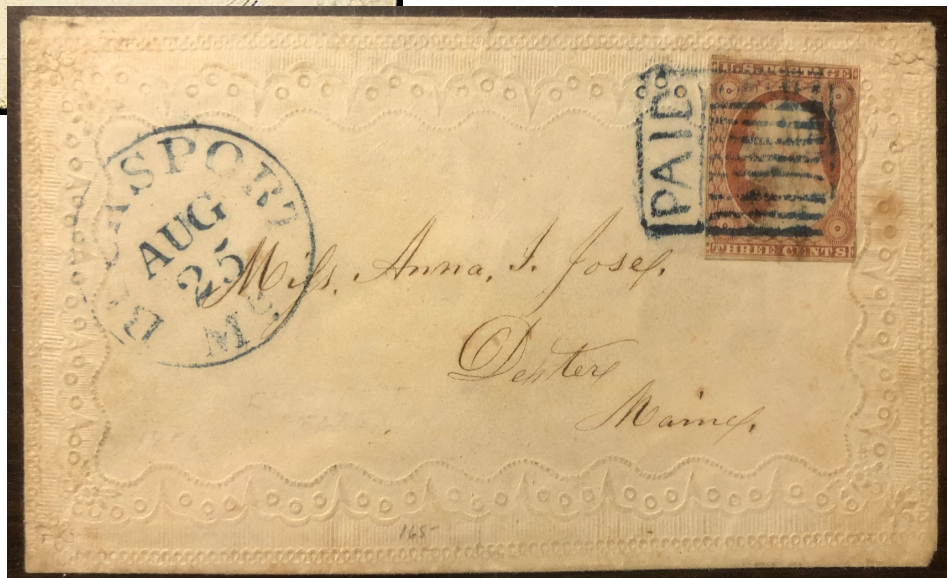 BUCKSPORT
AUG
25
Me.
PAID
U.S. POSTAGE
THREE CENTS
Miss. Anna. I. Jose,
Dexter
Maine,
165-